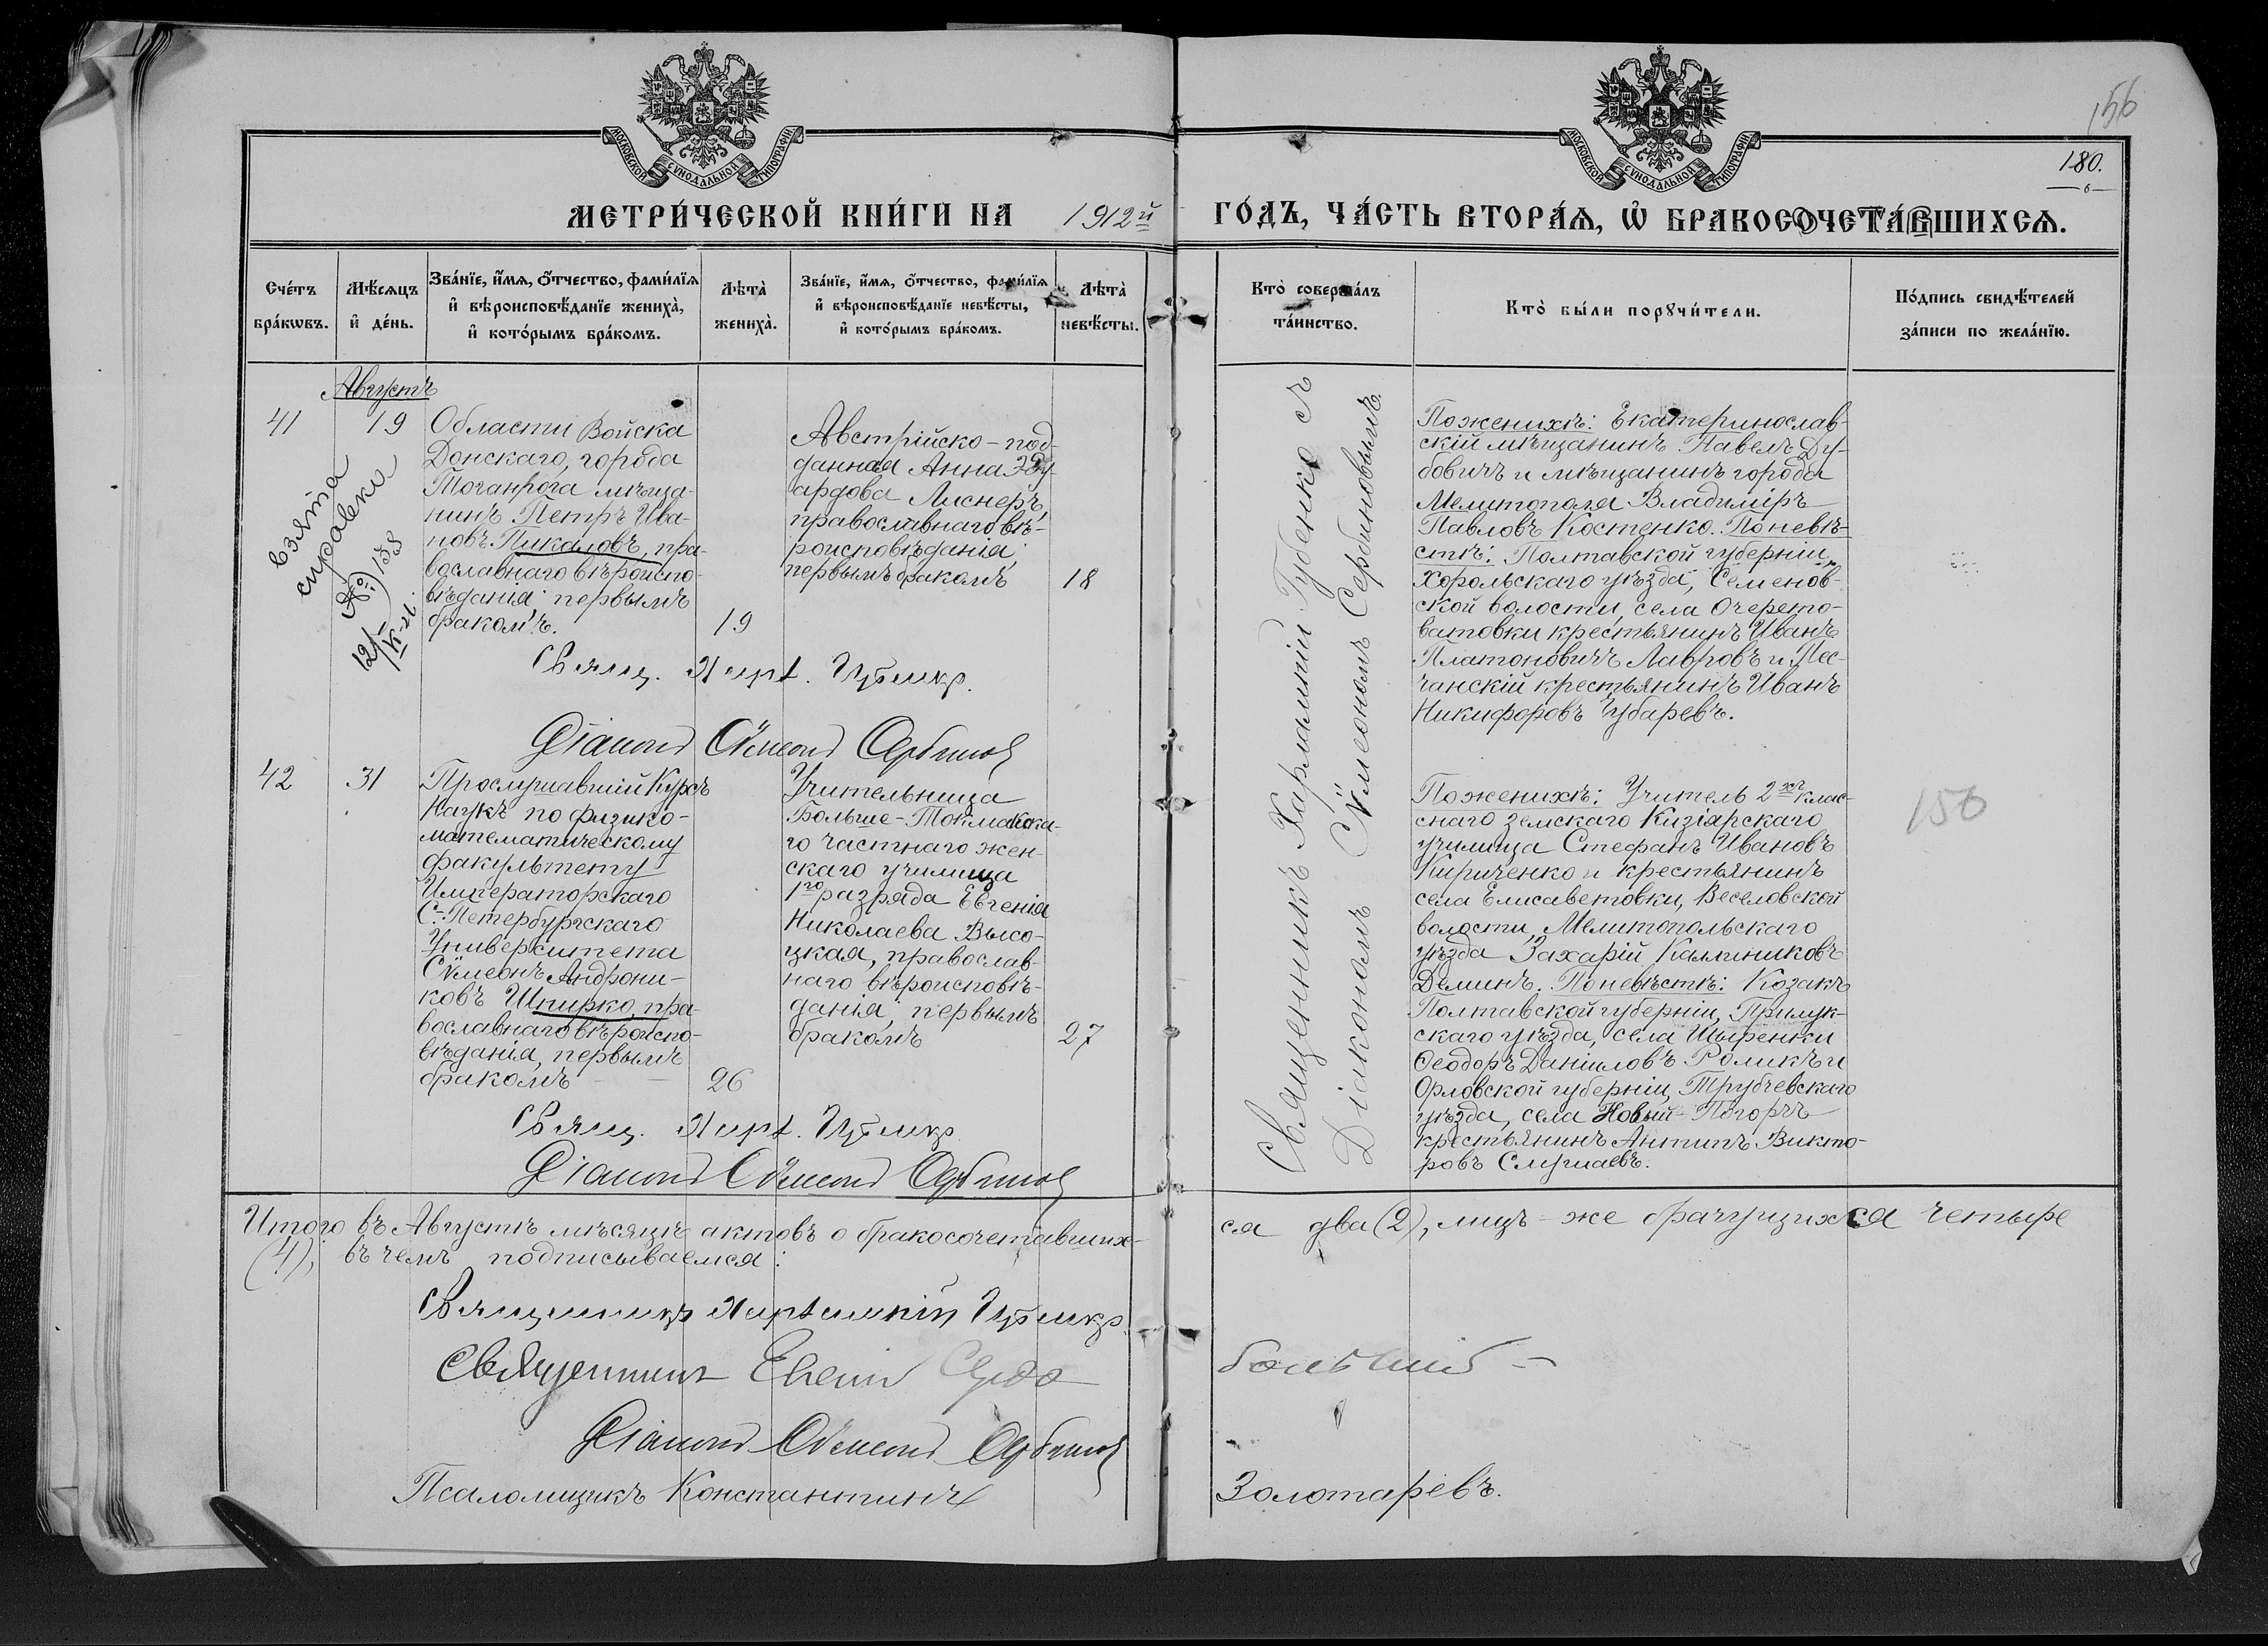 156
180.
МОСКОВСКОЙ СѴНОДАЛЬНОЙ ТИПОГРАФІИ
МОСКОВСКОЙ СѴНОДАЛЬНОЙ ТИПОГРАФІИ
МЕТРИ́ЧЕСКОЙ КНИ́ГИ НА 1912й ГО́ДЪ, ЧА́СТЬ ВТОРА́Я, Ѡ БРАКОСОЧЕТА́ВШИХСЯ.
Сче́тъ
бра́кѡвъ.
Мѣ́сяцъ
и҆ де́нь.
Зва́нїе, и҆́мя, ѻ҆́тчество, фами́лїя
и҆ вѣроисповѣ́данїе жениха̀,
и҆ кото́рымъ бра́комъ.
Лѣта̀
жениха̀.
Зва́нїе, и҆́мя, ѻ҆́тчество, фами́лїя
и҆ вѣроисповѣ́данїе невѣ́сты,
и҆ кото́рымъ бра́комъ.
Лѣта̀
невѣ́сты.
Кто̀ соверша́лъ
та́инство.
Кто̀ бы́ли порꙋчи́тели.
По́дпись свидѣ́телей
за́писи по жела́нїю.
Августъ
41
19
взята
справка
№ 138
12/
Области Войска
Донскаго, города
Тоганрога мѣща-
нинъ Петръ Ива-
новъ Пикаловъ, пра-
вославнаго вѣроиспо-
вѣданія; первымъ
бракомъ.
19
Австрійско-под-
данная Анна Эду-
ардова Лиснеръ,
православнаго вѣ-
роисповѣданія;
первымъ бракомъ
18
Священникъ Харлампій Губенко съ
Діакономъ Сѵмеономъ Сербиновымъ.
По женихѣ: Екатеринослав-
скій мѣщанинъ Павелъ Ду-
бовичъ и мѣщанинъ города
Мелитополя Владиміръ
Павловъ Костенко. По невѣ-
стѣ: Полтавской губерніи,
Хорольскаго уѣзда, Семенов-
ской волости, села Очерето-
ватовки крестьянинъ Иванъ
Платоновичъ Лавровъ и Пес-
чанскій крестьянинъ Иванъ
Никифоровъ Губаревъ.
Свящ. Харл. Губенко.
Діаконъ Сѵмеонъ Сербиновъ
42
31
Прослушавшій Курсъ
Наукъ по физико-
математическому
факультету
Императорскаго
С.-Петербургскаго
Университета
Сѵмеонъ Андрони-
ковъ Шпирко, пра-
вославнаго вѣроиспо-
вѣданія, первымъ
бракомъ
26
Учительница
Больше-Токмакска-
го частнаго жен-
скаго училища
1го разряда Евгенія
Николаева Высо-
цкая, православ-
наго вѣроисповѣ-
данія; первымъ
бракомъ
27
По женихѣ: Учитель 2хъ клас-
снаго земскаго Кизіарскаго
училища Стефанъ Ивановъ
Кириченко и крестьянинъ
села Елисаветовки, Веселовской
волости, Мелитопольскаго
уѣзда Захарій Калиниковъ
Деминъ. По невѣстѣ: Козакъ
Полтавской губерніи, Прилук-
скаго уѣзда, села
Ѳеодоръ Даніиловъ Роликъ и
Орловской губерніи, Трубчевскаго
уѣзда, села Новый-Погорчъ
крестьянинъ Антипъ Викто-
ровъ Слушаевъ.
150
Свящ. Харл. Губенко
Діаконъ Сѵмеонъ Сербиновъ
Итого въ Августѣ мѣсяцѣ актовъ о бракосочетавших-ся два (2), лицъ-же брачущихся четыре
(4), въ чемъ подписываемся:
Священникъ Харлампій Губенко.
Священникъ
Діаконъ Сѵмеонъ Сербиновъ
Псаломщикъ Константинъ Золотаревъ.